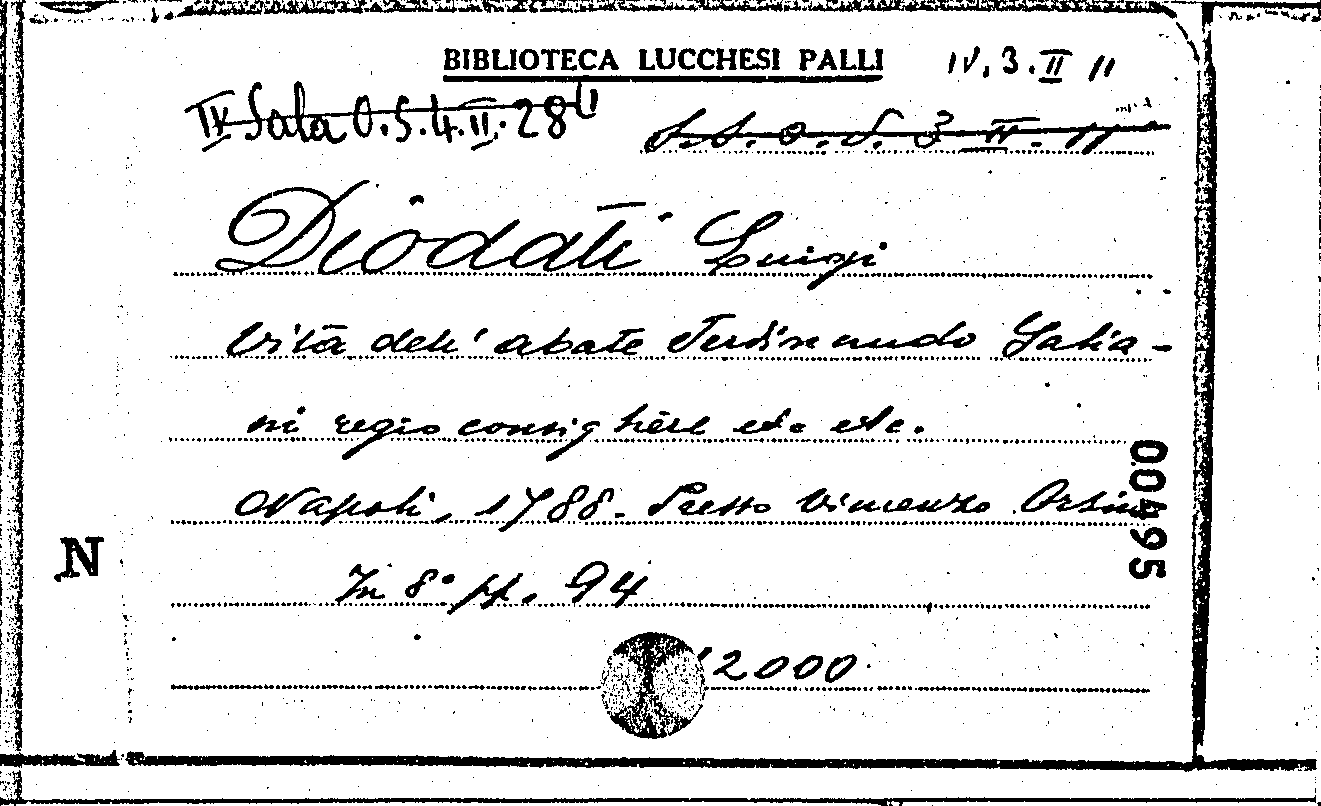 BIBLIOTECA LUCCHESI PALLI
IV. 3. II 11
IV Sala O.S.4.II.28
3 II. 11
Diodati Luigi
Vita dell' abate Ferdinando Galia-
ni regio consigliere etc etc.
Napoli, 1788. Presso Vincenzo Orsino
In 8° pp. 94
2000
00495
N